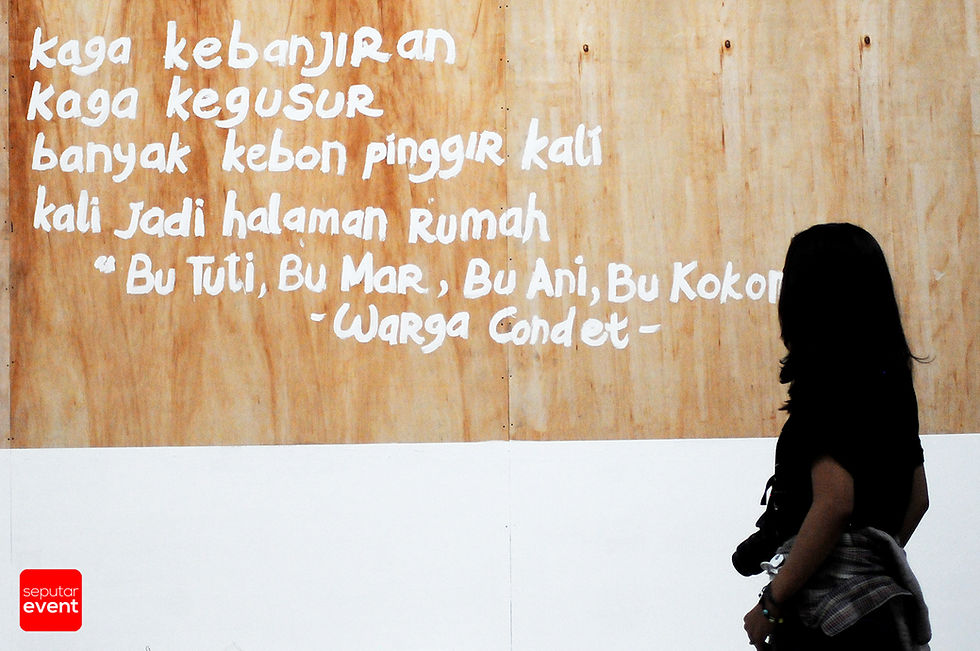 kaga kebanjiran
kaga kegusur
banyak kebon pinggir kali
kali jadi halaman rumah
“ Bu Tuti, Bu Mar, Bu Ani, Bu
- Warga Condet -
seputar
event